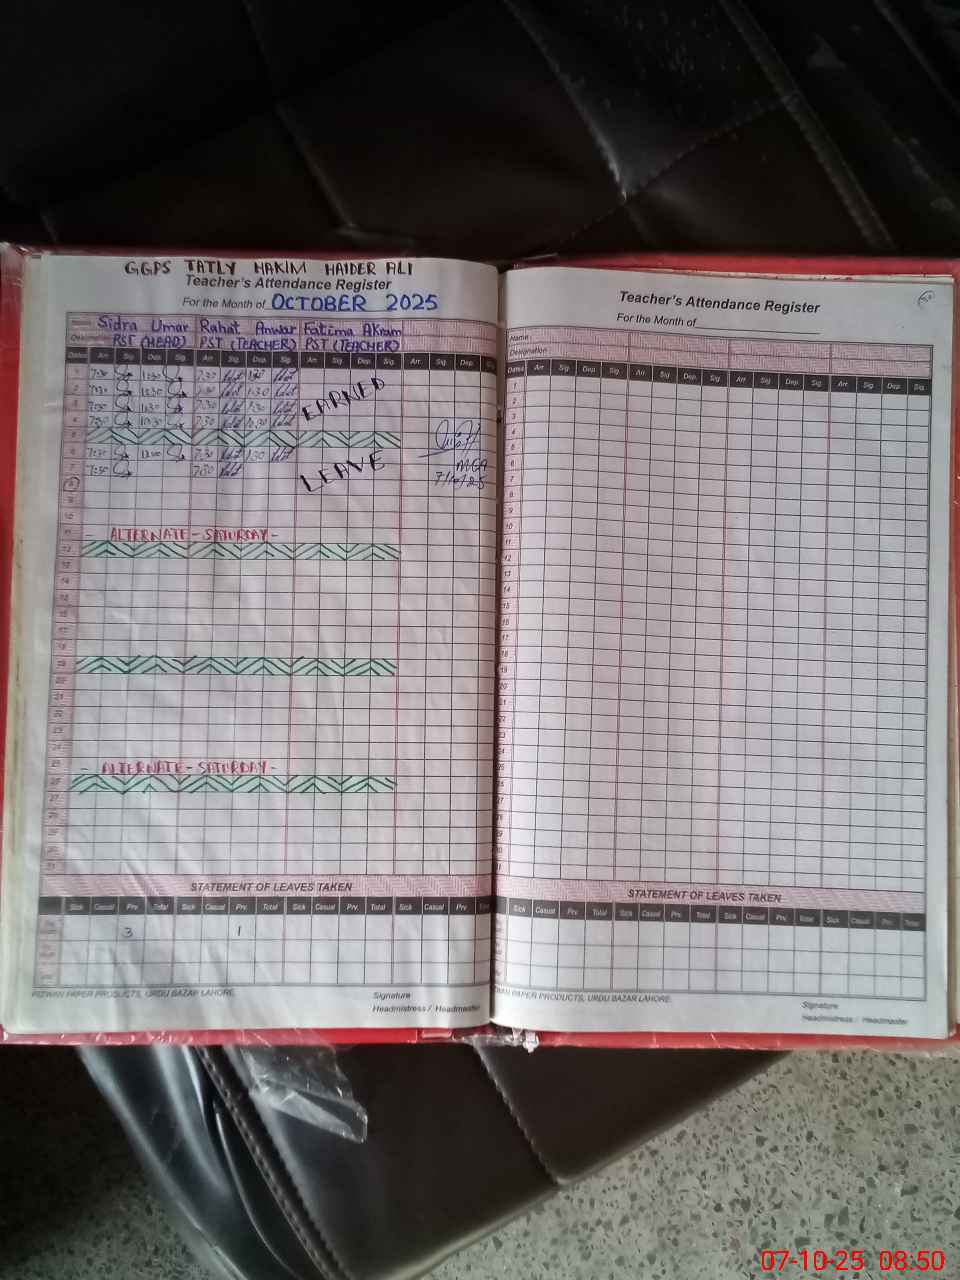 GGPS TATLY HAKIM HAIDER ALI
Teacher's Attendance Register
For the Month of OCTOBER 2025
Name Sidra Umar Rahat Anwar Fatima Akram
Designation PST (HEAD) PST (TEACHER) PST (TEACHER)
Dates Arr. Sig. Dep. Sig. Arr. Sig. Dep. Sig. Arr. Sig. Dep. Sig. Arr. Sig. Dep.
1 7:30 7:30
2 7:30 1:30
3 7:30
4 7:30 10:30 7:30 10:30
5
6 7:30 12:00 7:30 1:30
7 7:30 7:30
8
9
10
11 - ALTERNATE - SATURDAY -
12
13
14
15
16
17
18
19
20
21
22
23
24
25 - ALTERNATE - SATURDAY -
26
27
28
29
30
31
EARNED
LEAVE
MEA
7/10/25
STATEMENT OF LEAVES TAKEN
Sick Casual Prv. Total Sick Casual Prv. Total Sick Casual Prv. Total Sick Casual Prv. Total
3 1
RIZWAN PAPER PRODUCTS, URDU BAZAR LAHORE.
Signature
Headmistress / Headmaster
Teacher's Attendance Register
For the Month of
Name
Designation
Dates Arr. Sig. Dep. Sig. Arr. Sig. Dep. Sig. Arr. Sig. Dep. Sig. Arr. Sig. Dep. Sig.
1
2
3
4
5
6
7
8
9
10
11
12
13
14
15
16
17
18
19
20
21
22
23
24
25
26
27
28
29
30
31
STATEMENT OF LEAVES TAKEN
Sick Casual Prv. Total Sick Casual Prv. Total Sick Casual Prv. Total Sick Casual Prv. Total
PAPER PRODUCTS, URDU BAZAR LAHORE.
Signature
Headmistress / Headmaster
07-10-25 08:50